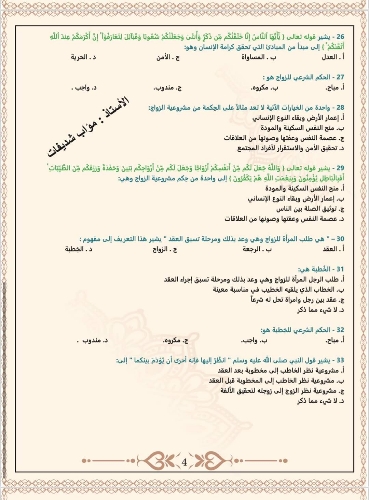 26 - يشير قوله تعالى ( يَٰٓأَيُّهَا ٱلنَّاسُ إِنَّا خَلَقۡنَٰكُم مِّن ذَكَرٖ وَأُنثَىٰ وَجَعَلۡنَٰكُمۡ شُعُوبٗا وَقَبَآئِلَ لِتَعَارَفُوٓاْۚ إِنَّ أَكۡرَمَكُمۡ عِندَ ٱللَّهِ
أَتۡقَىٰكُمۡ ) إلى مبدأ من المبادئ التي تحقق كرامة الإنسان وهو:
أ . العدل ب . المساواة ج . الأمن د . الحرية
27 - الحكم الشرعي للزواج هو :
أ. مباح. ب. مكروه. ج. مندوب. د. واجب .
28 - واحدة من الخيارات الآتية لا تعد مثالاً على الحكمة من مشروعية الزواج:
أ. إعمار الأرض وبقاء النوع الإنساني
ب. منح النفس السكينة والمودة
ج. عصمة النفس وعفتها وصونها من العلاقات
د. تحقيق الأمن والاستقرار لأفراد المجتمع
الأستاذ : مؤاب شديفات
29 - يشير قوله تعالى ( وَٱللَّهُ جَعَلَ لَكُم مِّنۡ أَنفُسِكُمۡ أَزۡوَٰجٗا وَجَعَلَ لَكُم مِّنۡ أَزۡوَٰجِكُم بَنِينَ وَحَفَدَةٗ وَرَزَقَكُم مِّنَ ٱلطَّيِّبَٰتِۚ
أَفَبِٱلۡبَٰطِلِ يُؤۡمِنُونَ وَبِنِعۡمَتِ ٱللَّهِ هُمۡ يَكۡفُرُونَ ) إلى واحدة من حكم مشروعية الزواج وهي:
أ. منح النفس السكينة والمودة
ب. إعمار الأرض وبقاء النوع الإنساني
ج. توثيق الصلة بين الناس
د. عصمة النفس وعفتها وصونها من العلاقات
30 – " هي طلب المرأة للزواج وهي وعد بذلك ومرحلة تسبق العقد " يشير هذا التعريف إلى مفهوم :
أ . العقد ب . الرجعة ج . الزواج د . الخطبة
31 - الخُطبة هي:
أ. طلب الرجل المرأة للزواج وهي وعد بذلك ومرحلة تسبق إجراء العقد
ب. الخطاب الذي يلقيه الخطيب في مناسبة معينة
ج. عقد بين رجل وامرأة تحل له شرعاً
د. لا شيء مما ذكر
32 - الحكم الشرعي للخطبة هو:
أ. مباح. ب. واجب. ج. مكروه. د. مندوب .
33 - يشير قول النبي صلى الله عليه وسلم " انظُرْ إليها فإنه أحرى أن يُؤدَمَ بينكما " إلى:
أ. مشروعية نظر الخاطب إلى مخطوبة بعد العقد
ب. مشروعية نظر الخاطب إلى المخطوبة قبل العقد
ج. مشروعية نظر الزوج إلى زوجته لتحقيق الألفة
د. لا شيء مما ذكر
4